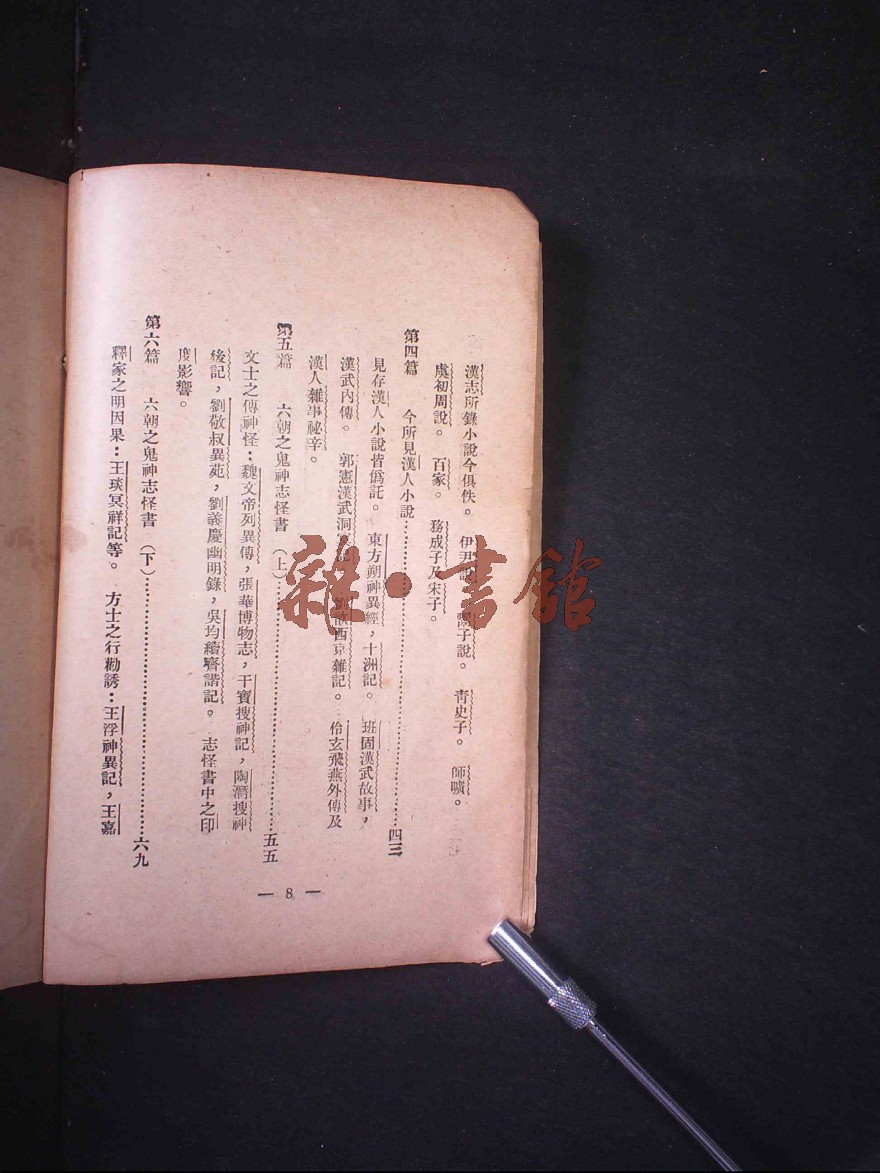 漢志所錄小說今俱佚。 伊尹說。 鬻子說。 靑史子。 師曠。
虞初周說。 百家。 務成子及宋子。
第四篇 今所見漢人小說…………四三
見存漢人小說皆僞託。 東方朔神異經，十洲記。 班固漢武故事，
漢武內傳。 郭憲漢武洞冥記。 劉歆西京雜記。 伶玄飛燕外傳及
漢人雜事祕辛。
第五篇 六朝之鬼神志怪書 （上）…………五五
文士之傳神怪：魏文帝列異傳，張華博物志，干寶搜神記，陶潛搜神
後記，劉敬叔異苑，劉義慶幽明錄，吳均續齊諧記。 志怪書中之印
度影響。
第六篇 六朝之鬼神志怪書 （下）…………六九
釋家之明因果：王琰冥祥記等。 方士之行勸誘：王浮神異記，王嘉
— 8 —
雜·書館